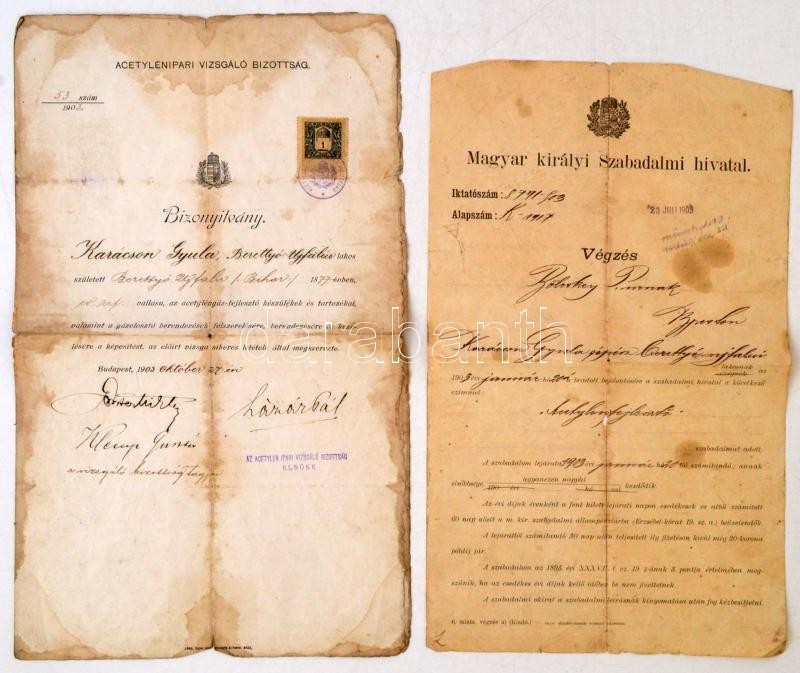 ACETYLÉNIPARI VIZSGÁLÓ BIZOTTSÁG.
53 szám
1903.
1
Bizonyitvány.
Karácson Gyula, Berettyó Ujfalui lakos
született Berettyó Ujfalu (Bihar) 1877 évben,
ev. ref. vallásu, az acetyléngáz-fejlesztő készülékek és tartozékai,
valamint a gázelosztó berendezések felszerelésére, berendezésére és keze-
lésére a képesitést, az előirt vizsga sikeres letétele által megszerezte.
Budapest, 1903 október 27-én
Lázár Pál
Klemp Gusztáv
a vizsgáló bizottság tagja
AZ ACETYLEN IPARI VIZSGÁLÓ BIZOTTSÁG
ELNÖKE
Magyar királyi Szabadalmi hivatal.
Iktatószám: 8791/903
Alapszám: K-1917
23 JULI 1903
Végzés
Karácson Gyula gépész Berettyóujfalui
lakosnak az
1903 évi január hó 20 án beadott bejelentésére a szabadalmi hivatal a következő
czimmel:
Acetylénfejlesztő
szabadalmat adott.
A szabadalom lejárata 1903 évi január hó 20 tól számitandó; annak
elsőbbsége ugyanezen nappal kezdődik.
190 évi hó tól
Az évi dijak évenként a fent kitett lejárati napon esedékesek és attól számitott
60 nap alatt a m. kir. szabadalmi állampénztárba (Erzsébet-körut 19. sz. a.) befizetendők.
A lejárattól számitandó 30 nap után teljesitett ily fizetésen kivül még 20 korona
pótdij jár.
A szabadalom az 1895. évi XXXVII. t. cz. 19. §-ának 3. pontja értelmében meg-
szünik, ha az esedékes évi dijak kellő időben be nem fizettetnek.
A szabadalmi okirat a szabadalmi leirásnak kinyomatása után fog kézbesittetni.
6. minta. végzés a) (Kiadv.)
2
darabanth